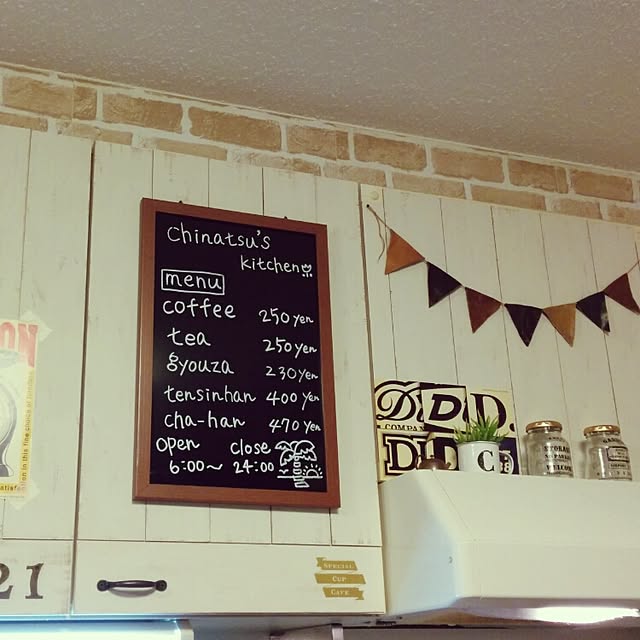 Chinatsu's
kitchen
menu
coffee 250 yen
tea 250 yen
gyouza 230 yen
tensinhan 400 yen
cha-han 470 yen
open close
6:00~ 24:00
ON
21
SPECIAL
CUP
CAFE
D D D.
COMPAN
D D
C